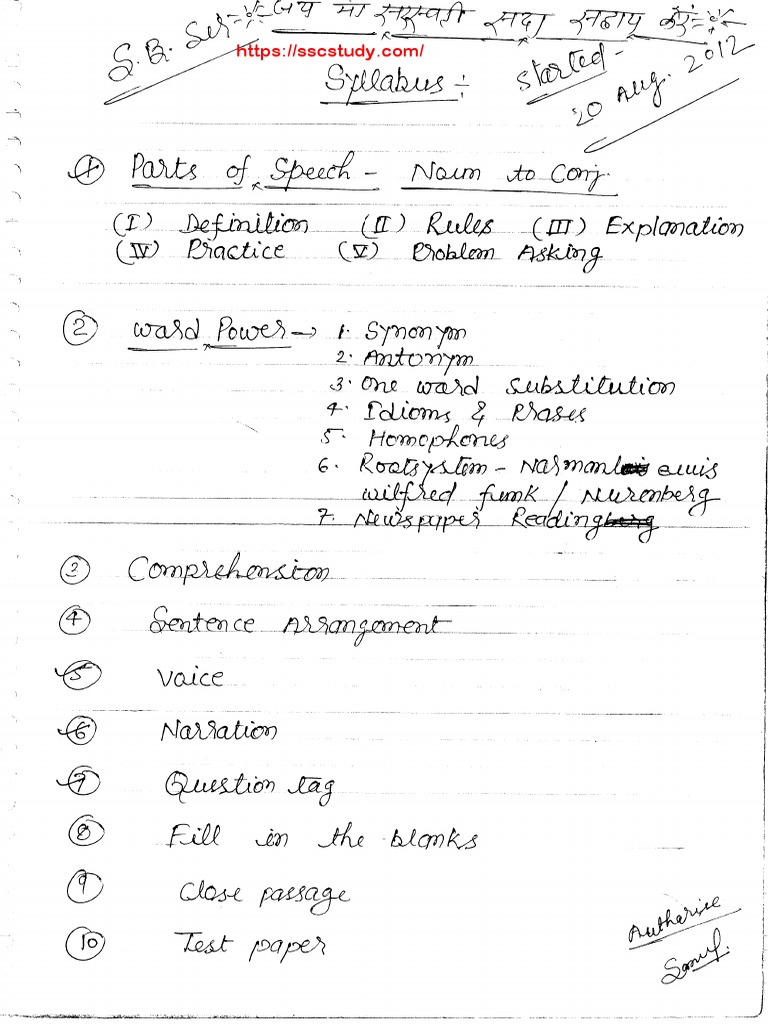 जय मां सरस्वती सदा सहाय करें
S.B. Ser
https://sscstudy.com/
Syllabus :-
Started -
20 Aug. 2012
1 Parts of Speech - Noun to Conj.
(I) Definition (II) Rules (III) Explanation
(IV) Practice (V) Problem Asking
2 Word Power → 1. Synonym
2. Antonym
3. One word substitution
4. Idioms & Prases
5. Homophones
6. Rootsystem - Narman
wilfred funk / Nurenberg
7. Newspaper Reading
3 Comprehension
4 Sentence Arrangement
5 Voice
6 Narration
7 Question tag
8 Fill in the blanks
9 Close passage
10 Test paper
Autharise